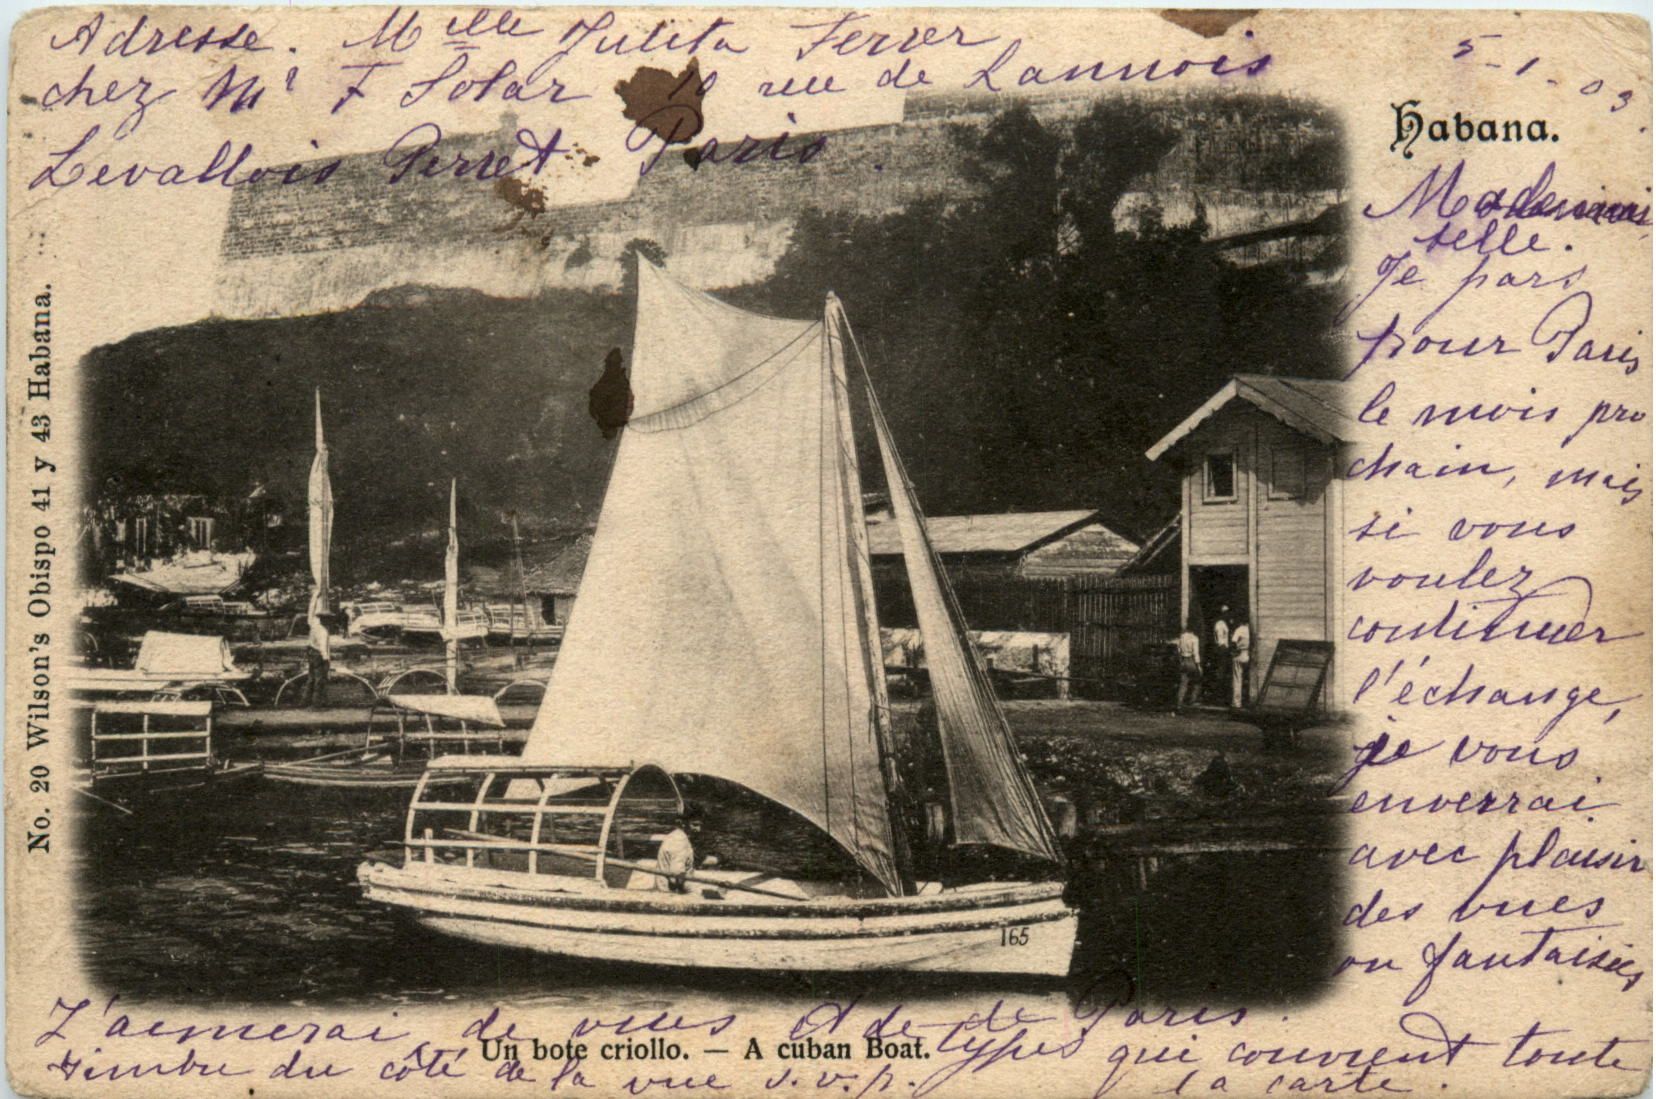 Adresse. Mlle Julita Ferrer
chez Mr F Solar 10 rue de Lannois
Levallois Perret Paris.
5-1-03.
Habana.
Mademoi
selle.
Je pars
pour Paris
le mois pro
chain, mais
si vous
voulez
continuer
l'échange,
je vous
enverrai
avec plaisir
des vues
ou fantaisies
J'aimerai de vues et de de Paris.
types qui couvrent toute
la carte.
timbre du côté de la vue s.v.p.
Un bote criollo. — A cuban Boat.
165
No. 20 Wilson's Obispo 41 y 43 Habana.